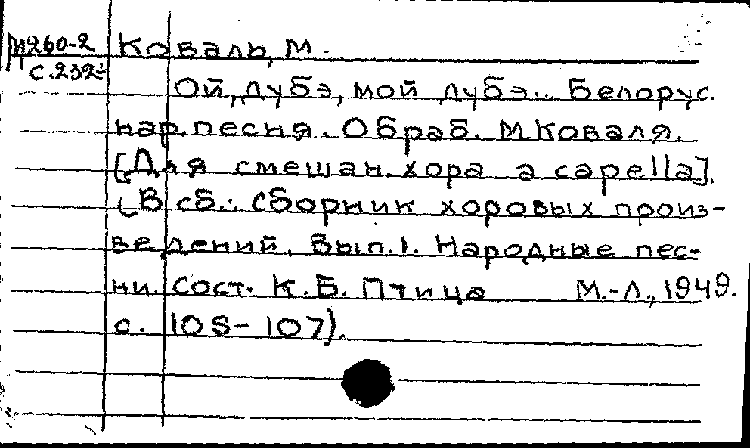 М260-2 Коваль, М.
С.232
Ой, дубэ, мой дубэ.. Белорус.
нар. песня. Обраб. М. Коваля.
[Для смешан. хора a capella].
(В сб.: Сборник хоровых произ-
ведений. Вып.1. Народные пес-
ни. Сост. К.Б. Птица М.-Л., 1949.
с. 105-107).